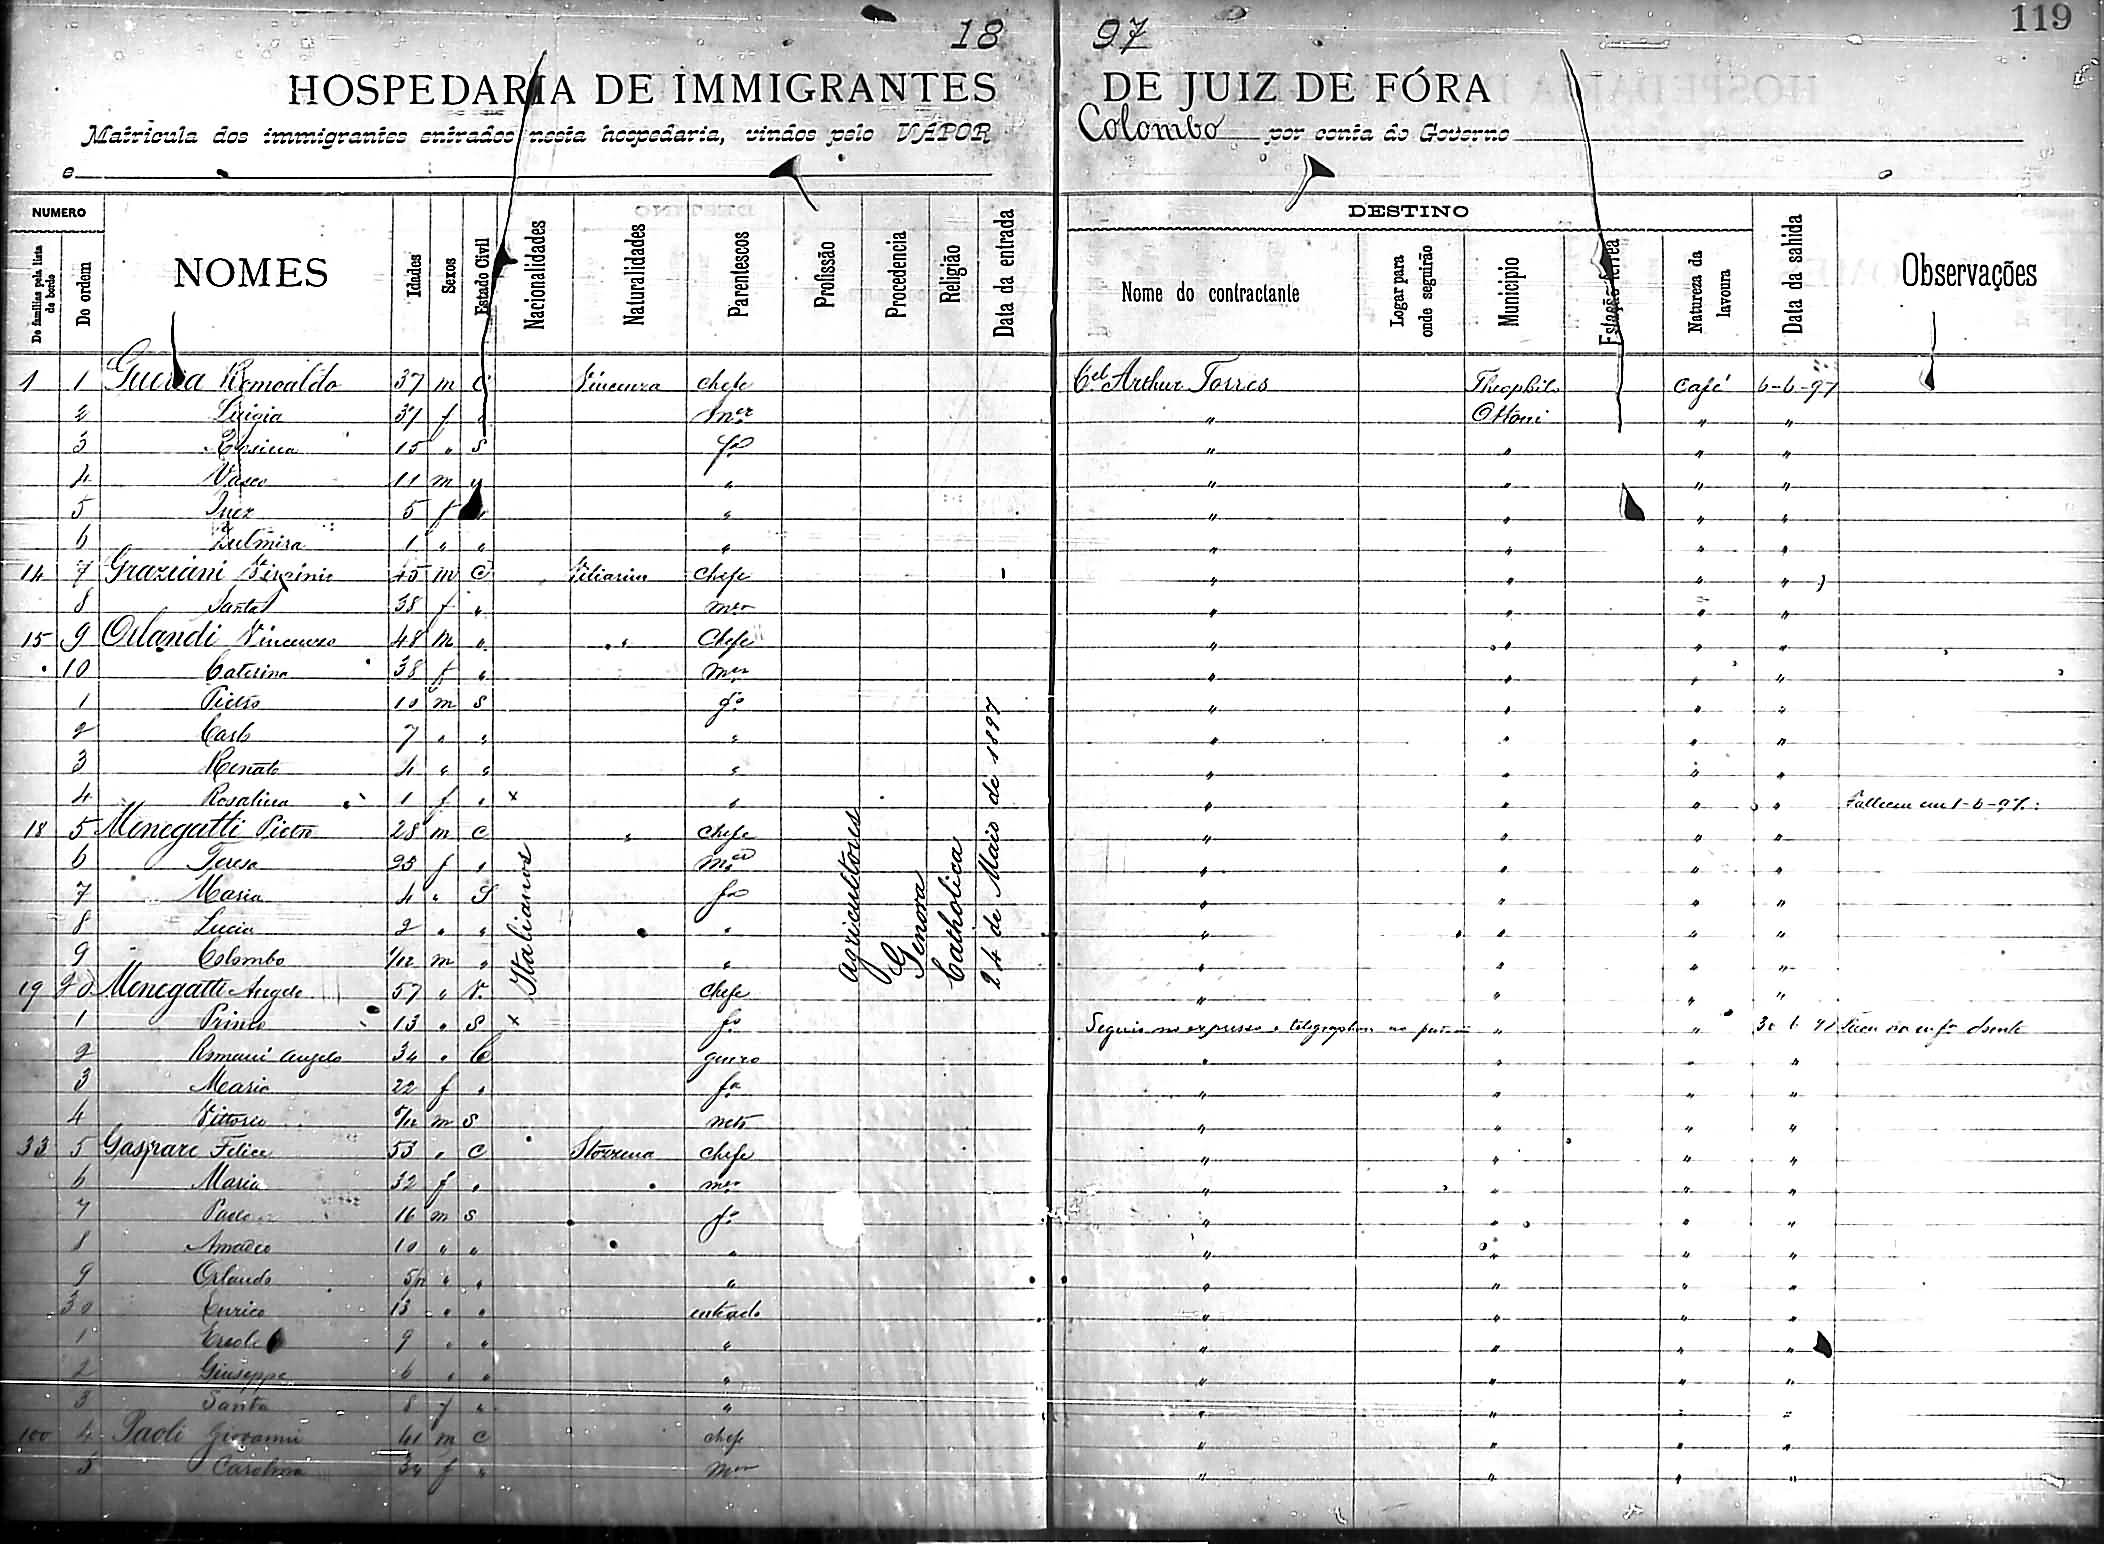 119
18 97
HOSPEDARIA DE IMMIGRANTES DE JUIZ DE FÓRA
Matricula dos immigrantes entrados nesta hospedaria, vindos pelo VAPOR Colombo por conta do Governo
e
NUMERO DESTINO
De familias pela lista de bordo Do ordem NOMES Idades Sexos Estado Civil Nacionalidades Naturalidades Parentescos Profissão Procedencia Religião Data da entrada Nome do contractante Logar para onde seguirão Municipio Estação ferrea Natureza da lavoura Data da sahida Observações
1 1 Guerra Romoaldo 37 m C Vincenza chefe Cel Arthur Torres Theophilo café 6-6-97
2 Luigia 37 f " mer " Ottoni " "
3 Rosina 15 " S fa " " " "
4 Vasco 11 m " " " " " "
5 Inez 5 f " " " " " "
6 Zulmira 1 " " " " " " "
14 7 Graziani Virginio 45 m C chefe " " " "
8 Santa 38 f " mer " " " "
15 9 Orlandi Vincenzo 48 m " " Chefe " " " "
10 Caterina 38 f " mer " " " "
1 Pietro 10 m S fo " " " "
2 Carlo 7 " " " " " " "
3 Renato 4 " " " " " " "
4 Rosalina 1 f " x " " " " " Falleceu em 1-6-97.
18 5 Menegatti Pietro 28 m C " chefe " " " "
6 Teresa 25 f " mer " " " "
7 Maria 4 " S fa " " " "
8 Lucia 2 " " " " " " "
9 Colombo 1/12 m " " " " " "
19 20 Menegatti Angelo 57 " V. chefe " " "
1 Primo 13 " S x fo Seguio no expresso " "
2 Romani Angelo 34 " C genro " " " "
3 Maria 22 f " fa " " " "
4 Vittorio m S neto " " " "
33 5 Gaspare Felice 53 " C chefe " " " "
6 Maria 32 f " mer " " " "
7 Paolo 16 m S fo " " " "
8 Amadeo 10 " " " " " " "
9 Orlando " " " " " " "
30 Enrico 13 " " enteado " " " "
1 Ercole 9 " " " " " " "
2 Giuseppe 6 " " " " " " "
3 Santa 8 f " " " " " "
100 4 Paoli Giovanni 41 m C chefe " " " "
5 Carolina 34 f " mer " " " "
Italianos
agricultores
Genova
Catholica
24 de Maio de 1897